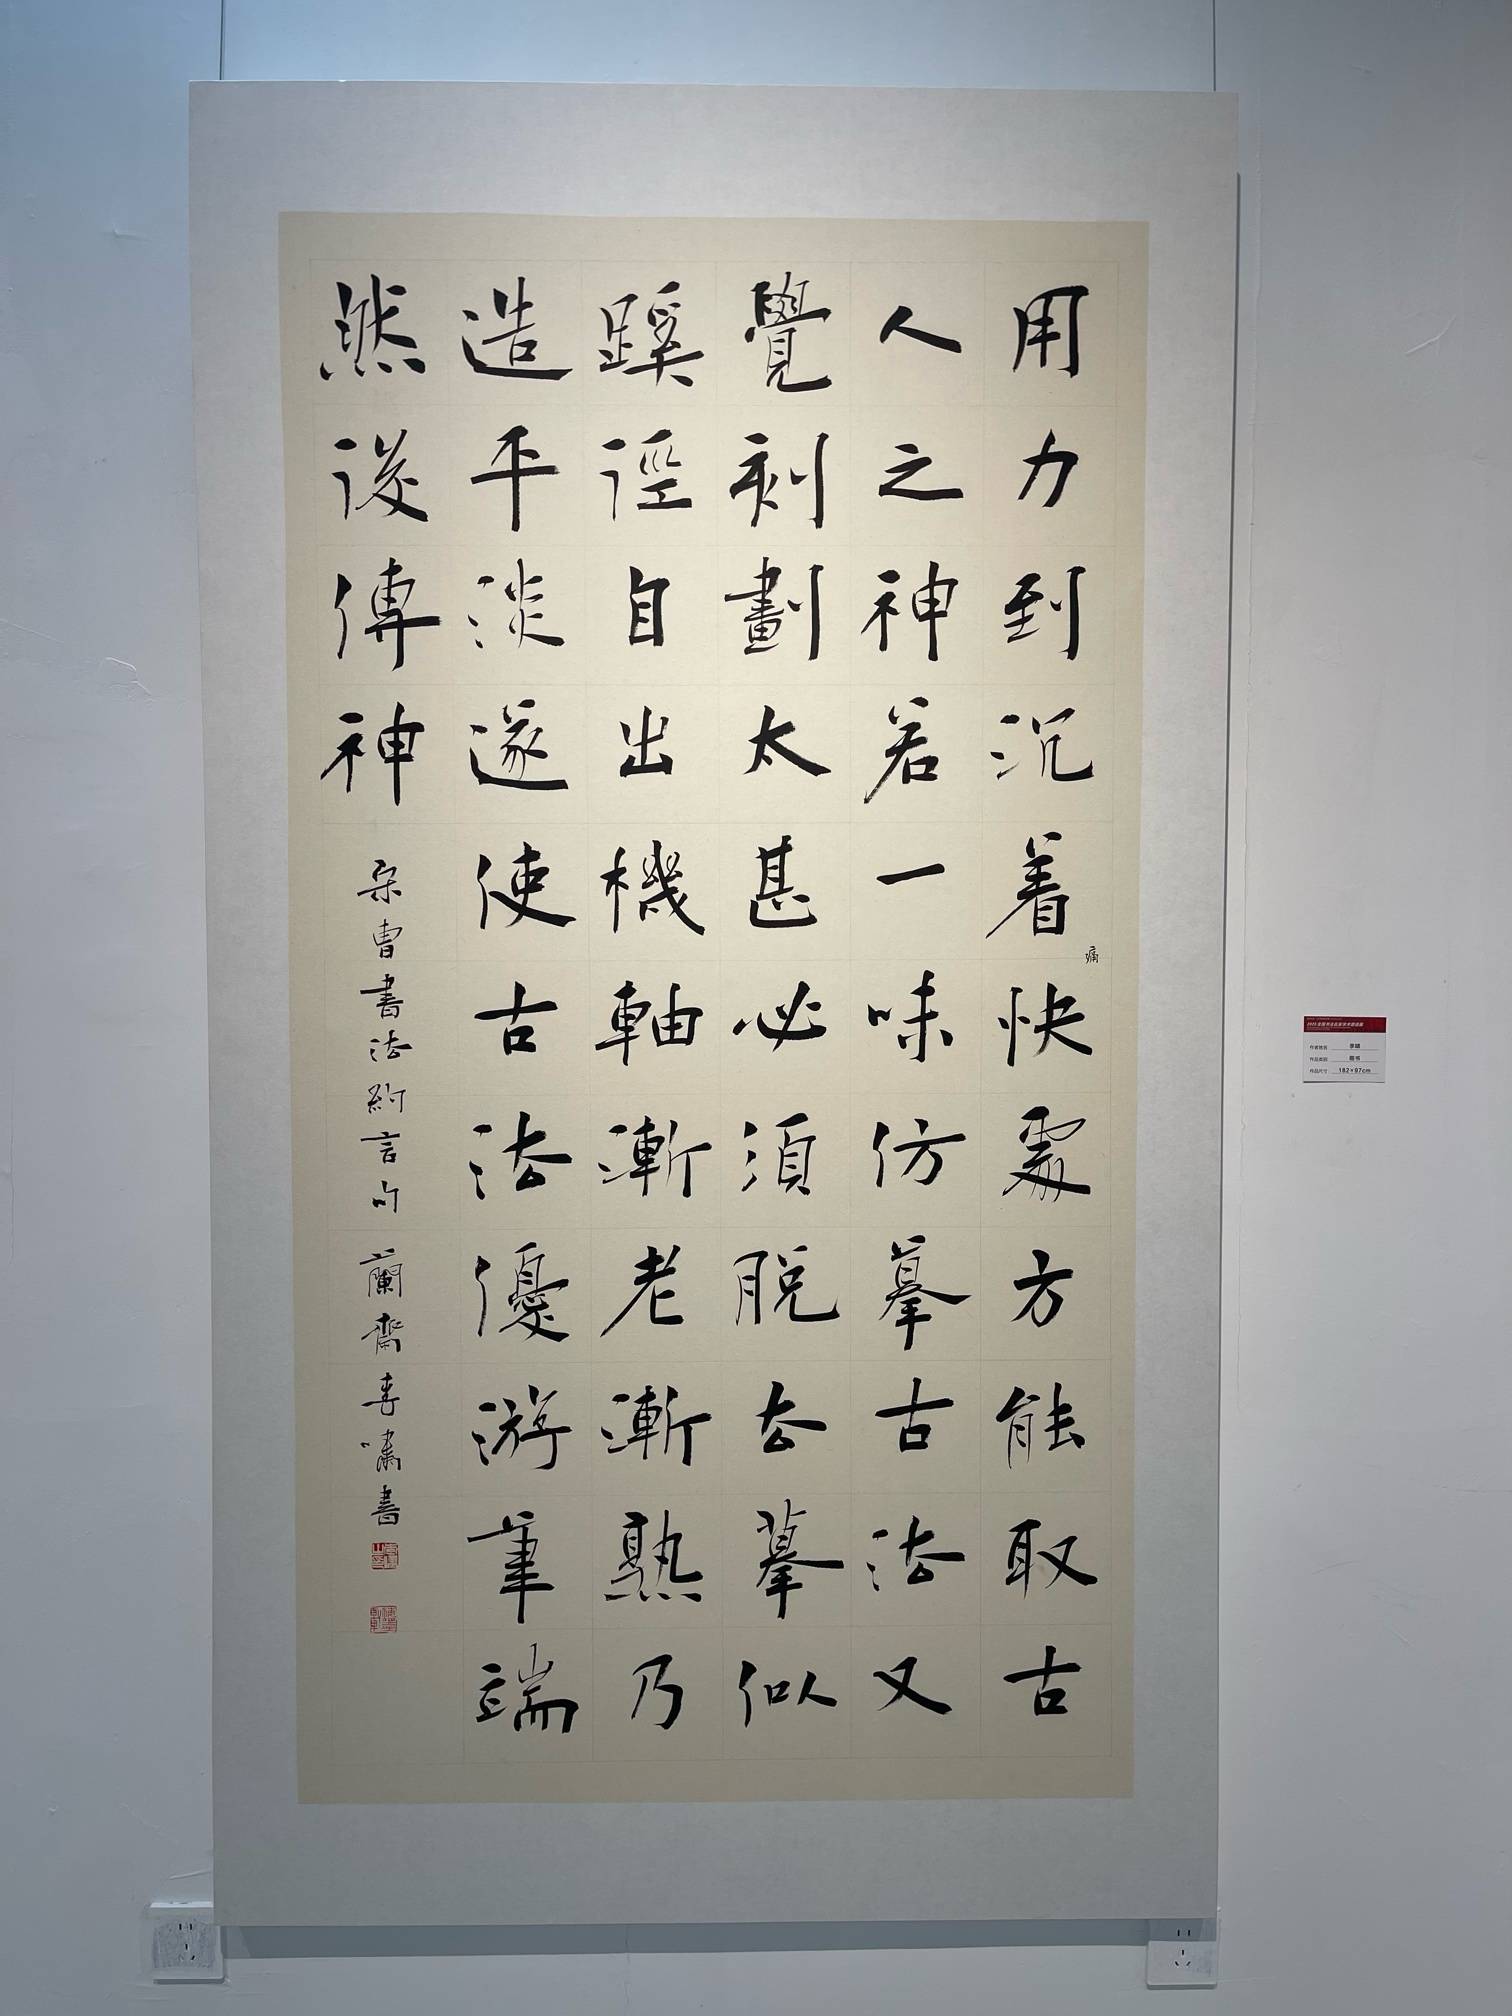 用力到沉着快處方能取古
痛
人之神若一味仿摹古法又
覺刻劃太甚必須脫去摹似
蹊徑自出機軸漸老漸熟乃
造平淡遂使古法優游筆端
然後傳神
宋曹書法約言句
蘭齋李嘯書
2025全国书法名家学术邀请展
作者姓名 李啸
作品类别 楷书
作品尺寸 182×97cm